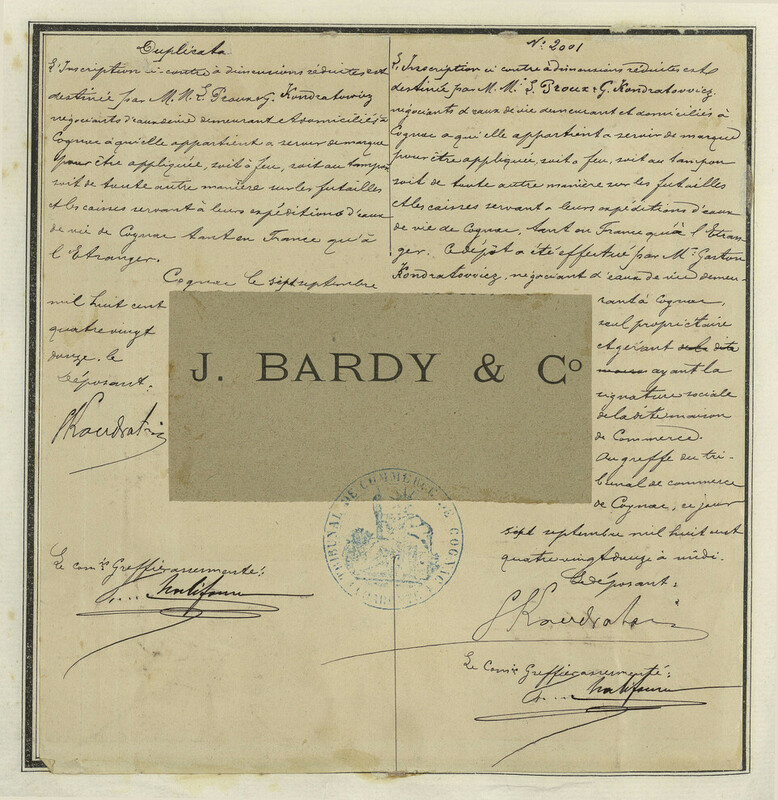 Duplicata
L'Inscription ci contre à dimensions réduites est
destinée par M.M. L. Proux & G. Kondratowiez
négociants d'eaux de vie demeurant et domiciliés à
Cognac à qu'elle appartient a servir de marque
pour être appliquée, soit à feu, soit au tampon
soit de toute autre manière sur les futailles
et les caisses servant à leurs expéditions d'eaux
de vie de Cognac tant en France qu'à
l'Etranger.
Cognac le sept septembre
mil huit cent
quatre vingt
douze. le
Déposant:
Le com's Greffier assermenté:
N: 2001
L'Inscription ci contre à dimensions réduites est
destinée par M.M. L. Proux & G. Kondratovviez,
négociants d'eaux de vie demeurant et domiciliés à
Cognac a qu'elle appartient a servir de marque
pour être appliquée, soit a feu, soit au tampon
soit de toute autre manière sur les futailles
et les caisses servant a leurs expéditions d'eaux
de vie de Cognac, tant en France qu'à l'Etran
ger. Ce dépôt a été effectué par Mr. Gaston
Kondratovviez, négociant d'eaux de vie demeu-
rant à Cognac,
seul propriétaire
et gérant de la dite
maison ayant la
signature sociale
de la dite maison
de Commerce.
Au greffe du tri-
bunal de commerce
de Cognac, ce jour
sept septembre mil huit cent
quatre vingt douze à midi.
Le déposant:
Le Com's Greffier assermenté:
J. BARDY & Co
TRIBUNAL DE COMMERCE DE COGNAC